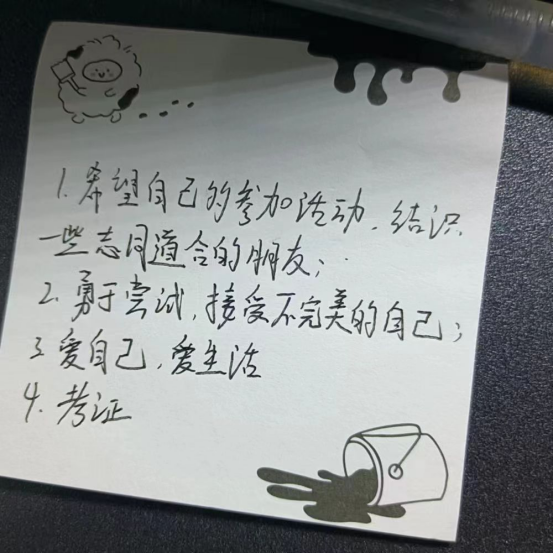 1. 希望自己的参加活动，结识
一些志同道合的朋友；
2. 勇于尝试，接受不完美的自己；
3. 爱自己，爱生活
4. 考证